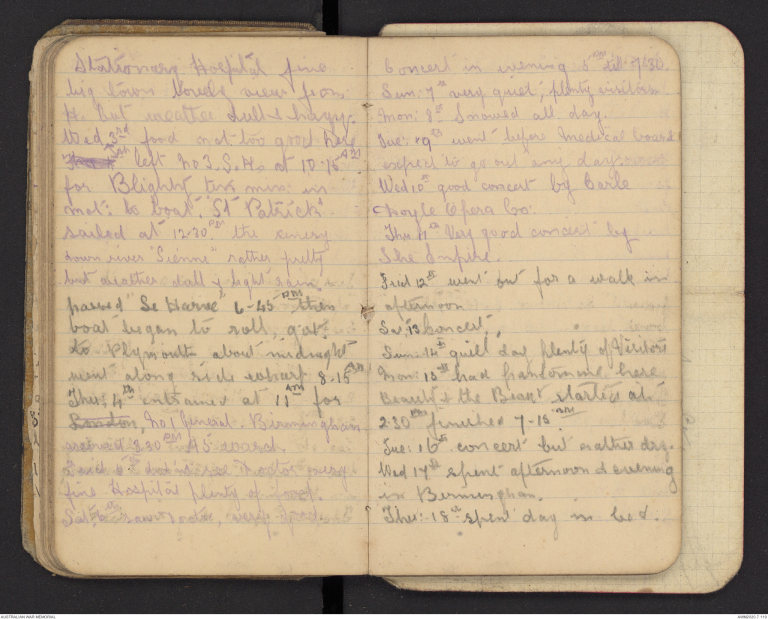 Stationary Hospital fine
big town lovely view from
it. but weather dull & hazy.
Wed 3rd food not too good here
left No 3. S.H. at 10-15 AM
for Blighty two mins in
mot: to boat "St Patrick"
sailed at 12-30 PM the scenery
down river "Sienne" rather pretty
but weather dull & light rain
passed "Le Harve" 6-45 PM then
boat began to roll, got
to Plymouth about midnight
went along side wharf 8-15 AM
Thur: 4th entrained at 11 AM for
London, No 1 General Birmingham
arrived 3.30 PM A5 ward.
5th
fine Hospital plenty of food.
Sat 6th saw doctor, very good
Concert in evening 5 PM till 7-30.
Sun: 7th very quiet; plenty visitors
Mon: 8th Snowed all day.
Tue: 9th went before Medical board
expect to go out any day
Wed 10th good concert by Carle
Doyle Opera Co.
Thu 11th Very good concert by
The Empire.
Frid 12th went out for a walk in
afternoon
Sat 13 Concert.
Sun: 14th quiet day plenty of Visitors
Mon: 15th had pantomime here
Beauty & the Beast started at
2-30 PM finished 7-15 PM
Tue: 16th concert but rather dry.
Wed 17th spent afternoon & evening
in Birmingham.
Thur: 18th spent day in bed.
AUSTRALIAN WAR MEMORIAL